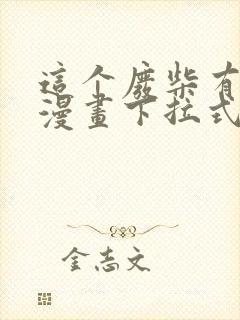 這个廢柴有
漫畫下拉式
金志文